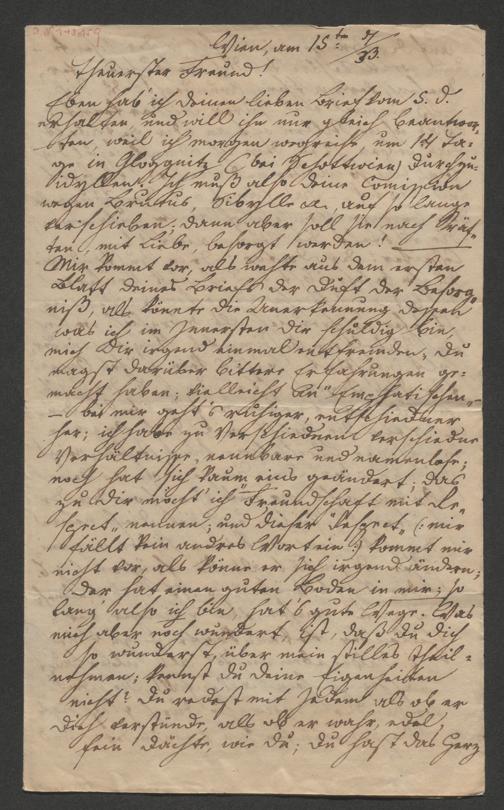 Wien, am 15ten 5/33.
Theuerster Freund!
Eben hab' ich deinen lieben Brief vom 5. d.
erhalten und will ihn nur gleich beantwor-
ten, weil ich morgen wegreise, um 14 Ta-
ge in Gloggnitz (bei Schottwien) durchzu-
idyllen. Ich muß also deine Comission
wegen Brutus, Sibylle etc. auf so lange
verschieben; dann aber soll sie nach Kräf-
ten, mit Liebe, besorgt werden!
Mir kommt vor, als wehte aus dem ersten
Blatt deines Briefs der Duft der Besorg-
niß, als könnte die Anerkennung dessen
was ich im Innersten dir schuldig bin,
mich dir irgend einmal entfremden. Du
magst darüber bittere Erfahrungen ge-
macht haben; vielleicht an "Emphatischen"
– bei mir geht's ruhiger, entschiedner
her; ich habe zu Verschiednen verschiedne
Verhältnisse, nennbare und namenlose;
noch hat sich kaum eins geändert; das
zu dir möcht' ich "Freundschaft mit Re-
spect" nennen; und dieser "Respect" (: mir
fällt kein andres Wort ein :) kommt mir
nicht vor, als könne er sich irgend ändern;
der hat einen guten Boden in mir; so
lang also ich bin, hat's gute Wege. Was
mich aber noch wundert, ist, daß du dich
so wunderst, über mein stilles Theil-
nehmen; kennst du deine Eigenheiten
nicht? Du redest mit Jedem als ob er
dich verstünde, als ob er wahr, edel,
fein dächte, wie du; du hast das Herz